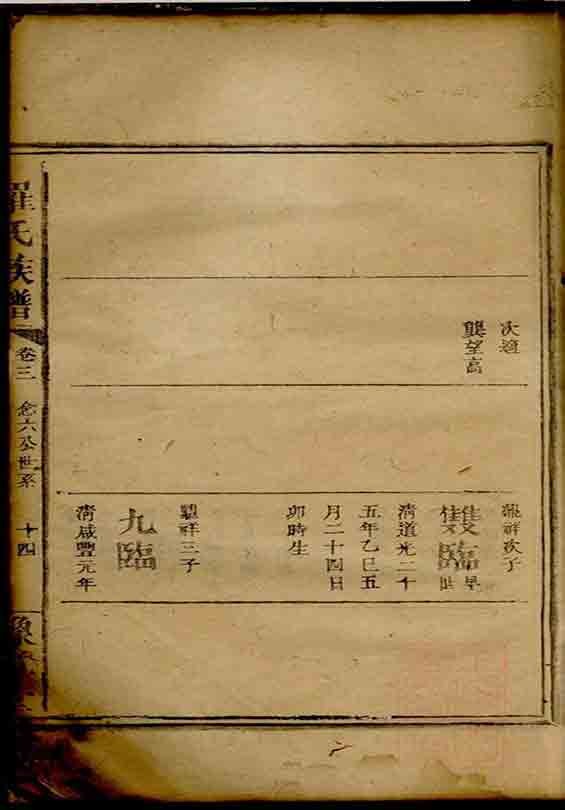 次適
龔望高
祥次子
臨早世
清道光二十
五年乙巳五
月二十四日
卯時生
祥三子
九臨
清咸豐元年
羅氏族譜
卷三
念六公世系
十四